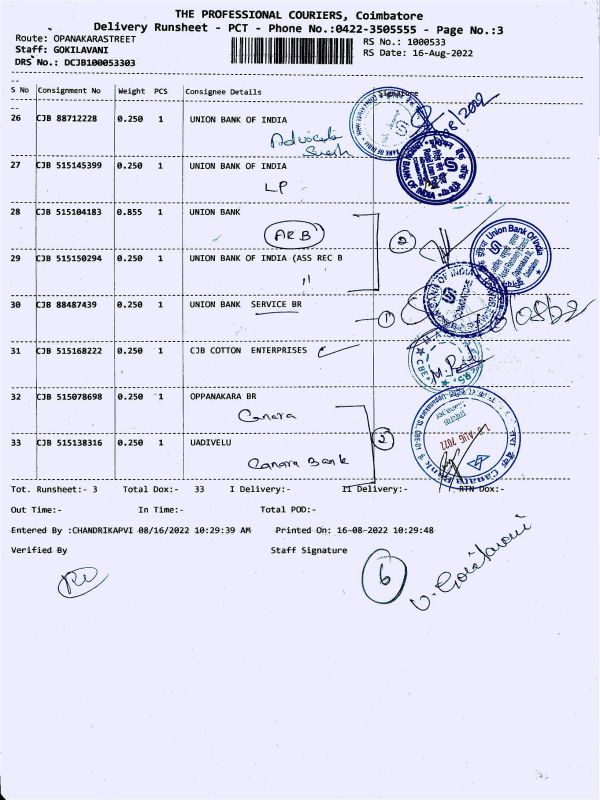 THE PROFESSIONAL COURIERS, Coimbatore
Delivery Runsheet - PCT - Phone No.:0422-3505555 - Page No.:3
Route: OPANAKARASTREET
RS No.: 1000533
Staff: GOKILAVANI
RS Date: 16-Aug-2022
DRS No.: DCJB100053303
S No Consignment No Weight PCS Consignee Details Signature
26 CJB 88712228 0.250 1 UNION BANK OF INDIA
Advocate
27 CJB 515145399 0.250 1 UNION BANK OF INDIA
LP
28 CJB 515104183 0.855 1 UNION BANK
ARB
2
29 CJB 515150294 0.250 1 UNION BANK OF INDIA (ASS REC B
11
30 CJB 88487439 0.250 1 UNION BANK SERVICE BR
1
31 CJB 515168222 0.250 1 CJB COTTON ENTERPRISES
32 CJB 515078698 0.250 1 OPPANAKARA BR
Canara
33 CJB 515138316 0.250 1 UADIVELU
2
Canara Bank
Union Bank Of India
AUG 2022
Canara Bank
Tot. Runsheet:- 3 Total Dox:- 33 I Delivery:- II Delivery:- RTN Dox:-
Out Time:- In Time:- Total POD:-
Entered By :CHANDRIKAPVI 08/16/2022 10:29:39 AM Printed On: 16-08-2022 10:29:48
Verified By Staff Signature
6